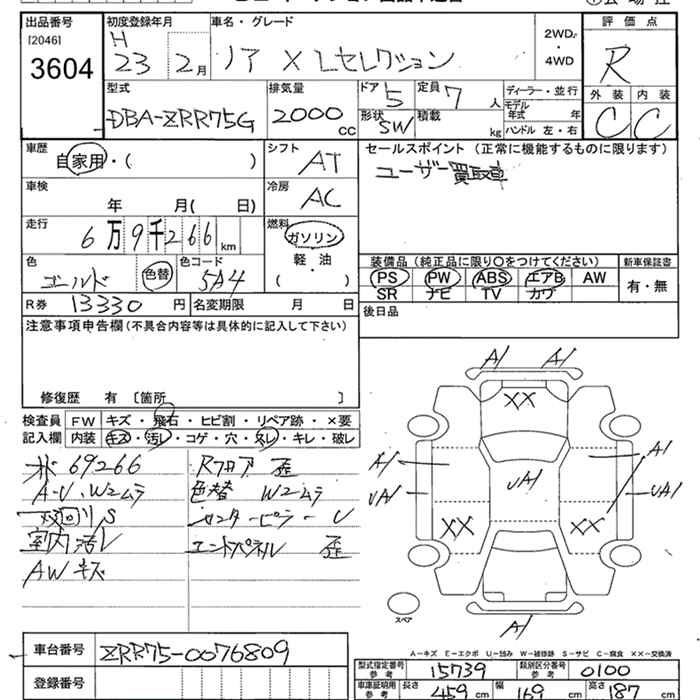 出品番号
[2046]
3604
初度登録年月
H
23 2月
車名・グレード
ノア X Lセレクション
2WD・
4WD
評価点
R
外装 内装
C C
型式
DBA-ZRR75G
排気量
2000 CC
ドア 5
形状 SW
定員 7 人
積載 kg
ディーラー・並行
モデル年式 年
ハンドル 左・右
車歴
自家用・( )
シフト
AT
セールスポイント (正常に機能するものに限ります)
ユーザー買取車
車検
年 月( 日)
冷房
AC
走行
6万9千266km
燃料
ガソリン
軽油
・
( )
色
ゴールド
色替
色コード
5A4
装備品(純正品に限り○をつけてください)
PS PW ABS エアB AW
SR ナビ TV カワ
新車保証書
有・無
R券 13330円
名変期限 月 日
後日品
注意事項申告欄(不具合内容等は具体的に記入して下さい)
修復歴 有 〔箇所 〕
検査員
記入欄
FW キズ・飛石・ヒビ割・リペア跡・×要
内装 キズ・汚レ・コゲ・穴・スレ・キレ・破レ
69266
A-U、W2ムラ
室内汚レ
AWキズ
Rフロア 歪
色替 W2ムラ
センターピラー U
エンドパネル 歪
A1 A1
XX
A1 A1
UA1 UA1 UA1
XX XX
A1
スペア
A-キズ E-エクボ U-凹み W-補修跡 S-サビ C-腐食 ××-交換済
車台番号
ZRR75-0076809
登録番号
型式指定番号 参考 15739
類別区分番号 参考 0100
車庫証明用 参考 長さ 459cm 幅 169cm 高さ 187cm